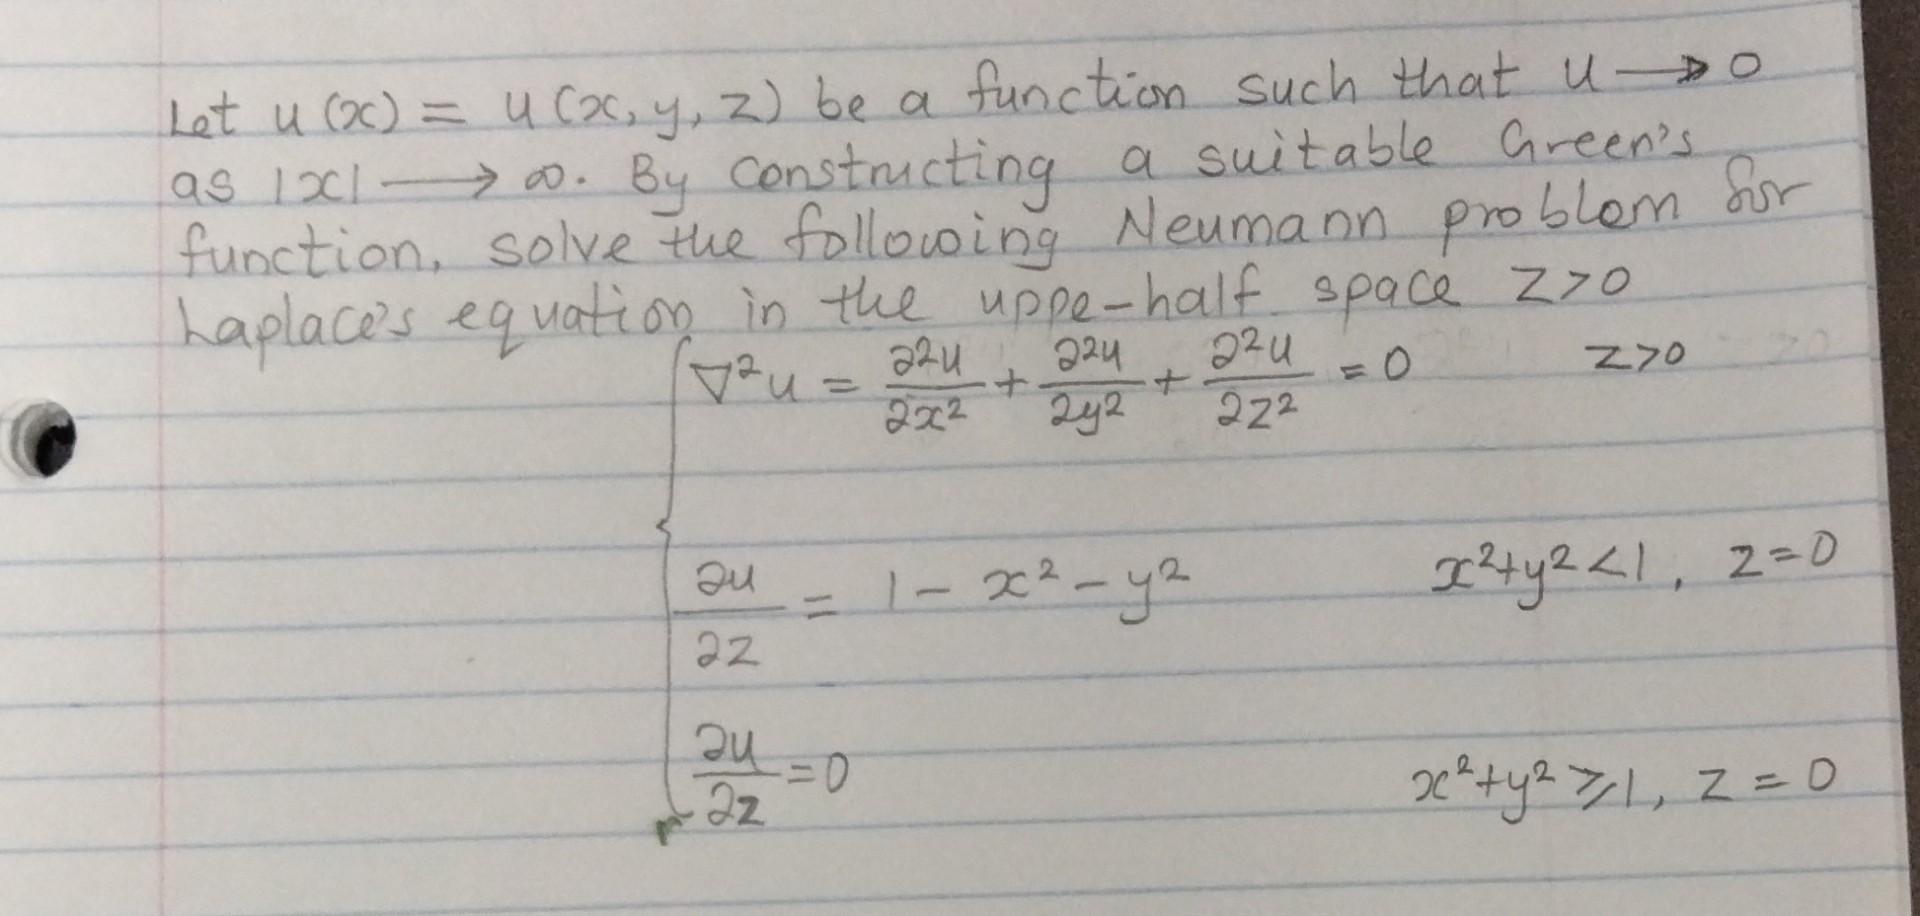 Let u(x) = u(x, y, z) be a function such that u → 0
as |x| → ∞. By constructing a suitable Green's
function, solve the following Neumann problem for
Laplace's equation in the uppe-half space z>0
∇²u = ∂²u/∂x² + ∂²u/∂y² + ∂²u/∂z² = 0 z>0
∂u/∂z = 1 - x² - y² x²+y²<1, z=0
∂u/∂z = 0 x²+y²⩾1, z=0